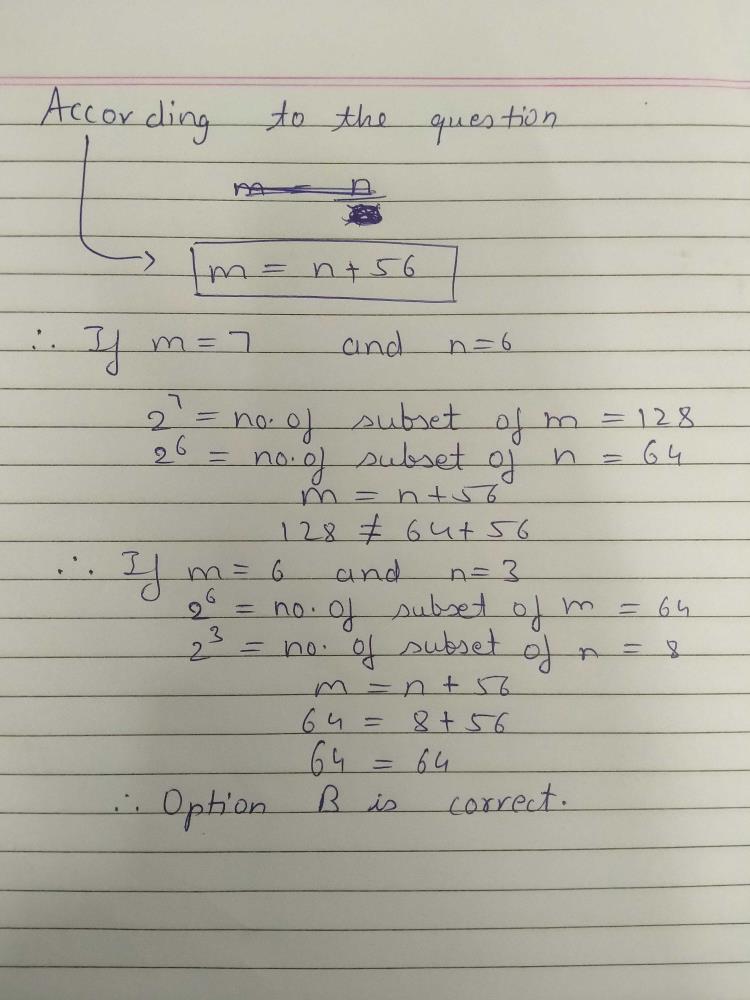 According to the question
m = n
m = n + 56
∴ If m = 7 and n = 6
2^7 = no. of subset of m = 128
2^6 = no. of subset of n = 64
m = n + 56
128 ≠ 64 + 56
∴ If m = 6 and n = 3
2^6 = no. of subset of m = 64
2^3 = no. of subset of n = 8
m = n + 56
64 = 8 + 56
64 = 64
∴ Option B is correct.